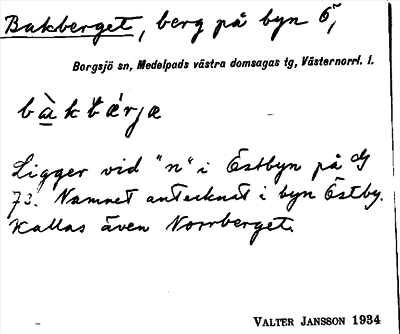 Bakberget, berg på byn 6,
Borgsjö sn, Medelpads västra domsagas tg, Västernorrl. l.
bàkbärjæ
Ligger vid "n" i Östbyn på
73. Namnet antecknat i byn Östby.
Kallas även Norrberget.
VALTER JANSSON 1934